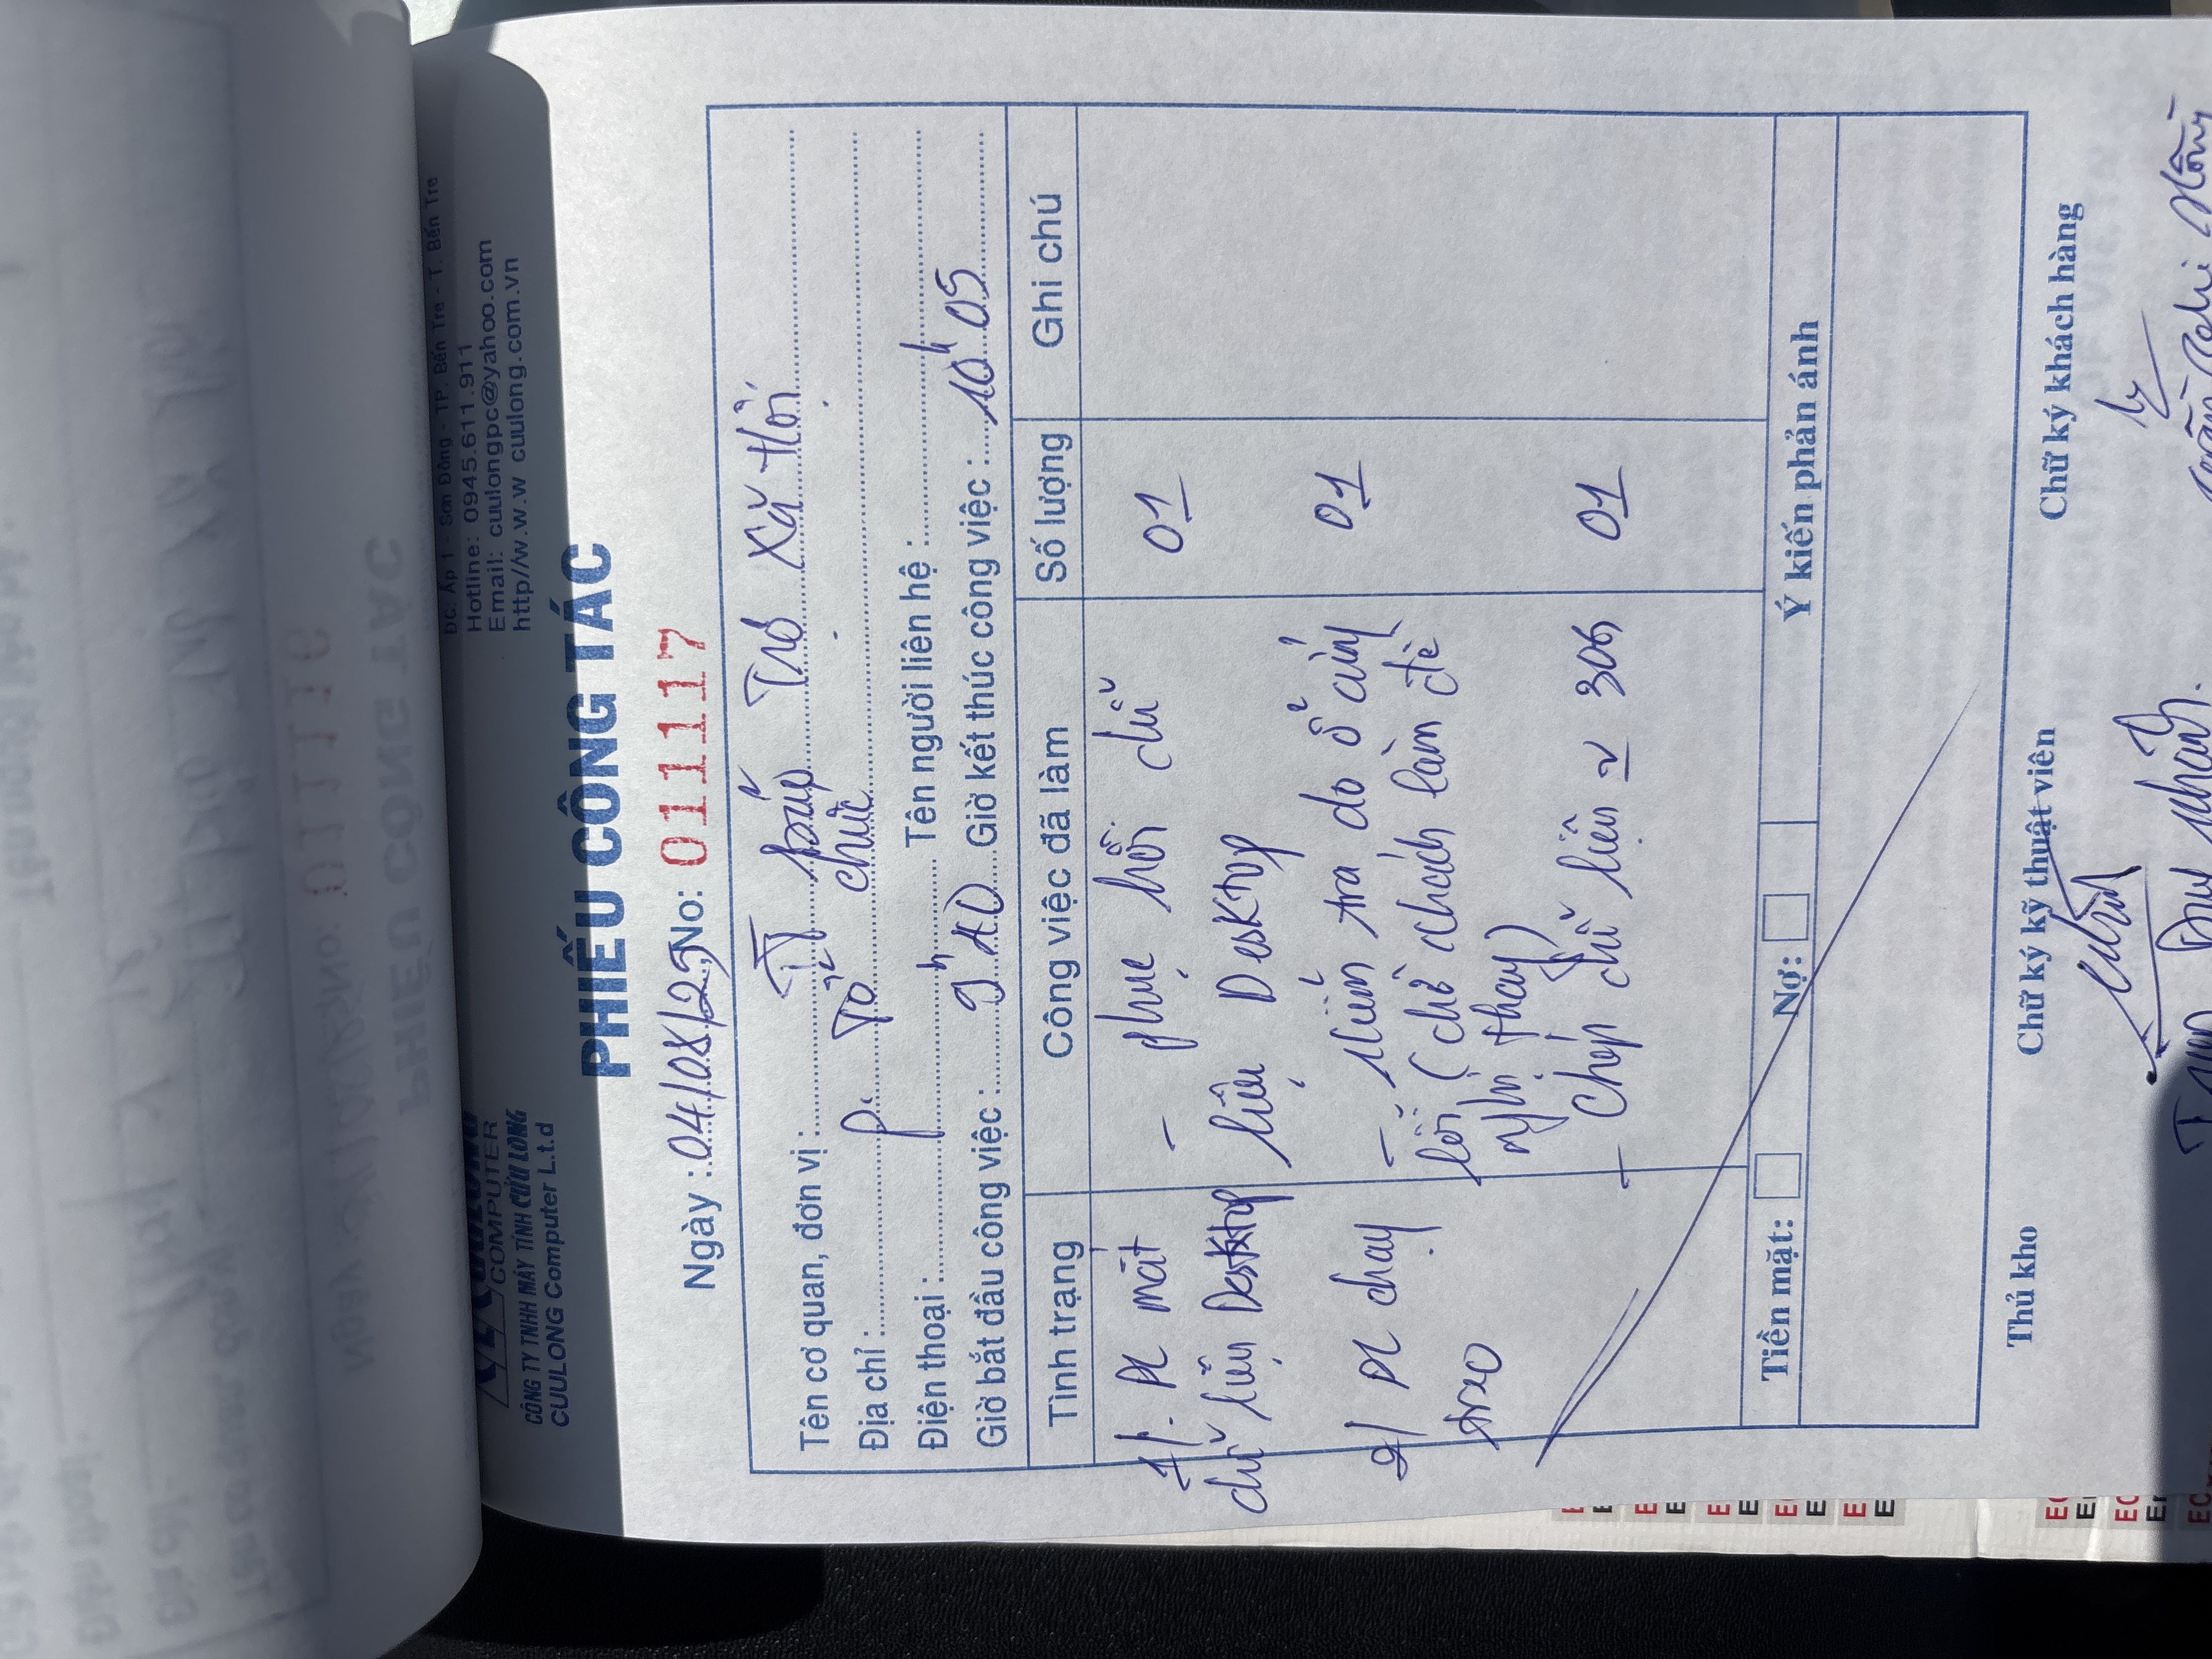 COMPUTER
CÔNG TY TNHH MÁY TÍNH CỬU LONG
CUULONG Computer L.t.d
ĐC: Ấp 1 - Sơn Đông - TP. Bến Tre - T. Bến Tre
Hotline: 0945.611.911
Email: cuulongpc@yahoo.com
http//w.w.w cuulong.com.vn
PHIẾU CÔNG TÁC
Ngày : 04/08/25 No: 011117
Tên cơ quan, đơn vị : TT Bảo Trợ Xã Hội
Địa chỉ : P. Tổ chức
Điện thoại : Tên người liên hệ :
Giờ bắt đầu công việc : 9h 10 Giờ kết thúc công việc : 10h 05
Tình trạng Công việc đã làm Số lượng Ghi chú
1/. PC mất - phục hồi chữ 01
chữ liệu Desktop liệu Desktop
2/ PC chạy - kiểm tra do ổ cứng 01
treo lỗi (chổ khách làm đề
nghị thay)
- Chép chữ liệu ~ 30G 01
Tiền mặt: Nợ: Ý kiến phản ánh
Thủ kho Chữ ký kỹ thuật viên Chữ ký khách hàng